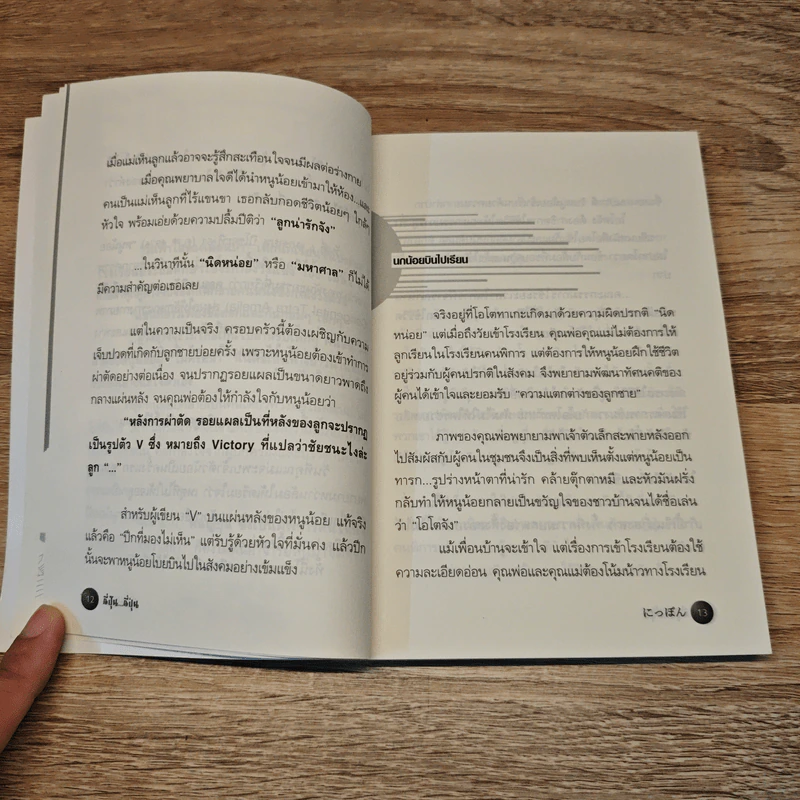 เมื่อแม่เห็นลูกแล้วอาจจะรู้สึกสะเทือนใจจนมีผลต่อร่างกาย
เมื่อคุณพยาบาลใจดีได้นำหนูน้อยเข้ามาให้ห้อง...และ
คนเป็นแม่เห็นลูกที่ไร้แขนขา เธอกลับกอดชีวิตน้อยๆ ใกล้ๆ
หัวใจ พร้อมเอ่ยด้วยความปลื้มปีติว่า “ลูกน่ารักจัง”
...ในวินาทีนั้น “นิดหน่อย” หรือ “มหาศาล” ก็ไม่ได้
มีความสำคัญต่อเธอเลย
แต่ในความเป็นจริง ครอบครัวนี้ต้องเผชิญกับความ
เจ็บปวดที่เกิดกับลูกชายบ่อยครั้ง เพราะหนูน้อยต้องเข้าทำการ
ผ่าตัดอย่างต่อเนื่อง จนปรากฏรอยแผลเป็นขนาดยาวพาดถึง
กลางแผ่นหลัง จนคุณพ่อต้องให้กำลังใจกับหนูน้อยว่า
“หลังการผ่าตัด รอยแผลเป็นที่หลังของลูกจะปรากฏ
เป็นรูปตัว V ซึ่ง หมายถึง Victory ที่แปลว่าชัยชนะไงล่ะ
ลูก “...”
สำหรับผู้เขียน “V” บนแผ่นหลังของหนูน้อย แท้จริง
แล้วคือ “ปีกที่มองไม่เห็น” แต่รับรู้ด้วยหัวใจที่มั่นคง แล้วปีก
นั้นจะพาหนูน้อยโบยบินไปในสังคมอย่างเข้มแข็ง
12 ยี่ปุ่น...ยี่ปุ่น
นกน้อยบินไปเรียน
จริงอยู่ที่โอโตทาเกะเกิดมาด้วยความผิดปรกติ “นิด
หน่อย” แต่เมื่อถึงวัยเข้าโรงเรียน คุณพ่อคุณแม่ไม่ต้องการให้
ลูกเรียนในโรงเรียนคนพิการ แต่ต้องการให้หนูน้อยฝึกใช้ชีวิต
อยู่ร่วมกับผู้คนปรกติในสังคม จึงพยายามพัฒนาทัศนคติของ
ผู้คนได้เข้าใจและยอมรับ “ความแตกต่างของลูกชาย”
ภาพของคุณพ่อพยายามพาเจ้าตัวเล็กสะพายหลังออก
ไปสัมผัสกับผู้คนในชุมชนจึงเป็นสิ่งที่พบเห็นตั้งแต่หนูน้อยเป็น
ทารก...รูปร่างหน้าตาที่น่ารัก คล้ายตุ๊กตาหมี และหัวมันฝรั่ง
กลับทำให้หนูน้อยกลายเป็นขวัญใจของชาวบ้านจนได้ชื่อเล่น
ว่า “โอโตจัง”
แม้เพื่อนบ้านจะเข้าใจ แต่เรื่องการเข้าโรงเรียนต้องใช้
ความละเอียดอ่อน คุณพ่อและคุณแม่ต้องโน้มน้าวทางโรงเรียน
にっぽん 13